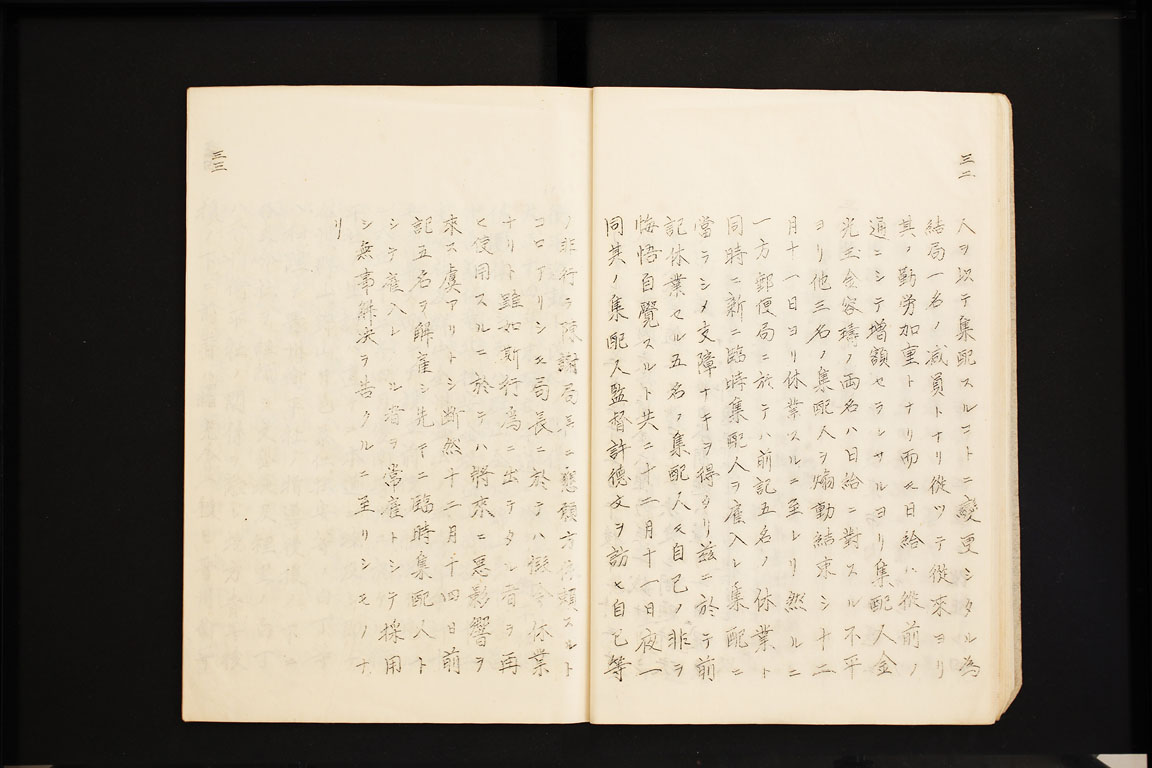 三二
人ヲ以テ集配スルコトニ変更シタル為
結局一名ノ減員トナリ従ツテ従来ヨリ
其ノ勤労加重トナリ而モ日給ハ従前ノ
通ニシテ増額セラレサルヨリ集配人金
兆玉金容璹ノ両名ハ日給ニ対スル不平
ヨリ他三名ノ集配人ヲ煽動結束シ十二
月十一日ヨリ休業スルニ至レリ然ルニ
一方郵便局ニ於テハ前記五名ノ休業ト
同時ニ新ニ臨時集配人ヲ雇入レ集配ニ
當ラシメ支障ナキヲ得タリ茲ニ於テ前
記休業セル五名ノ集配人モ自己ノ非ヲ
悔悟自覚スルト共ニ十二月十一日夜一
同其ノ集配人監督許徳文ヲ訪ヒ自己等
三三
ノ非行ヲ陳謝局長ニ懇願方依頼スルト
コロアリシモ局長ニ於テハ仮令休業
ナリト雖如斯行為ニ出テタル者ヲ再
ヒ使用スルニ於テハ将来ニ悪影響ヲ
来ス虞アリトシ断然十二月十四日前
記五名ヲ解雇シ先キニ臨時集配人ト
シテ雇入レ ル者ヲ常雇トシテ採用
シ無事解決ヲ告クルニ至リシモノナ
リ